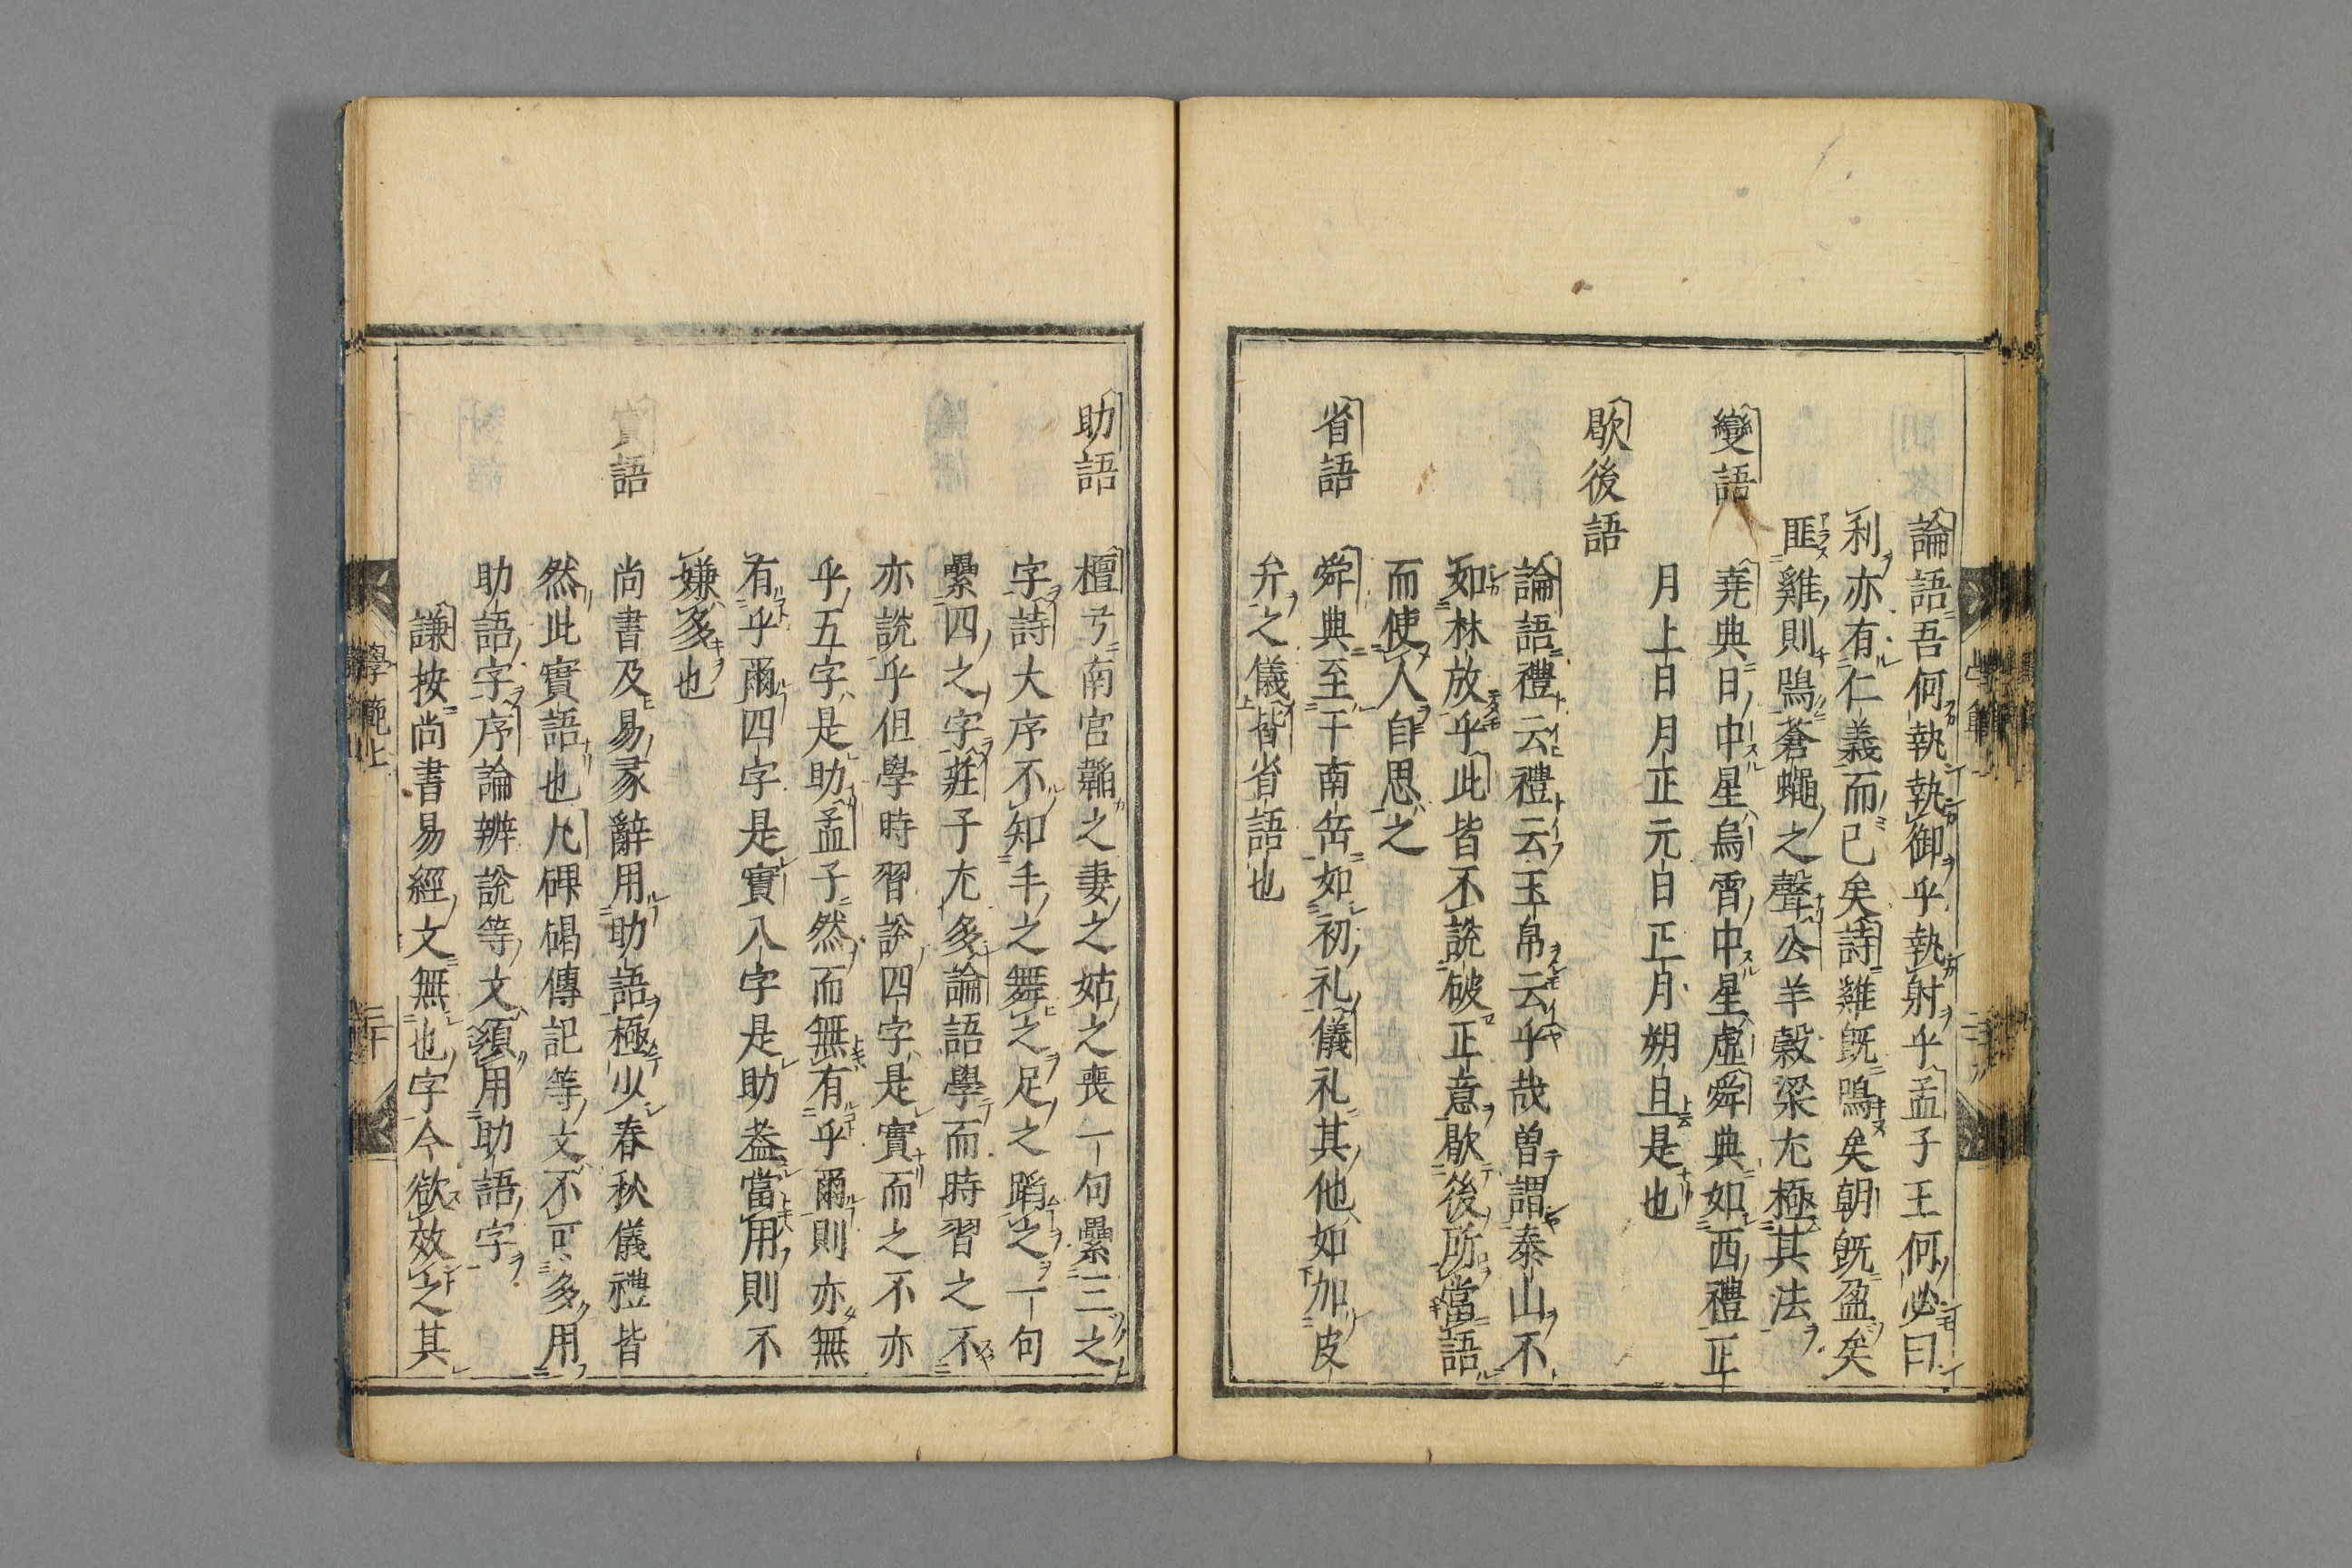 論語吾何執執御乎執射乎孟子王何必曰
利亦有仁義而已矣詩雞既鳴矣朝既盈矣
匪雞則鳴蒼蠅之聲公羊穀梁尤極其法
變語
堯典日中星鳥宵中星虛舜典如西禮正
月上日月正元日正月朔旦是也
歇後語
論語禮云禮云玉帛云乎哉曾謂泰山不
如林放乎此皆不說破正意歇後所當語
而使人自思之
省語
舜典至于南岳如初礼儀礼其他如加皮
弁之儀皆省語也
助語
檀弓南宮韜之妻之姑之喪一句纍三之
字詩大序不知手之舞之足之蹈之一句
纍四之字莊子尤多論語學而時習之不
亦說乎但學時習說四字是實而之不亦
乎五字是助孟子然而無有乎爾則亦無
有乎爾四字是實八字是助葢當用則不
嫌多也
實語
尚書及易彖辭用助語極少春秋儀禮皆
然此實語也凡碑碣傳記等文不可多用
助語字序論辨說等文須用助語字
謙按尚書易經文無也字今欲效之其
學範上
三十